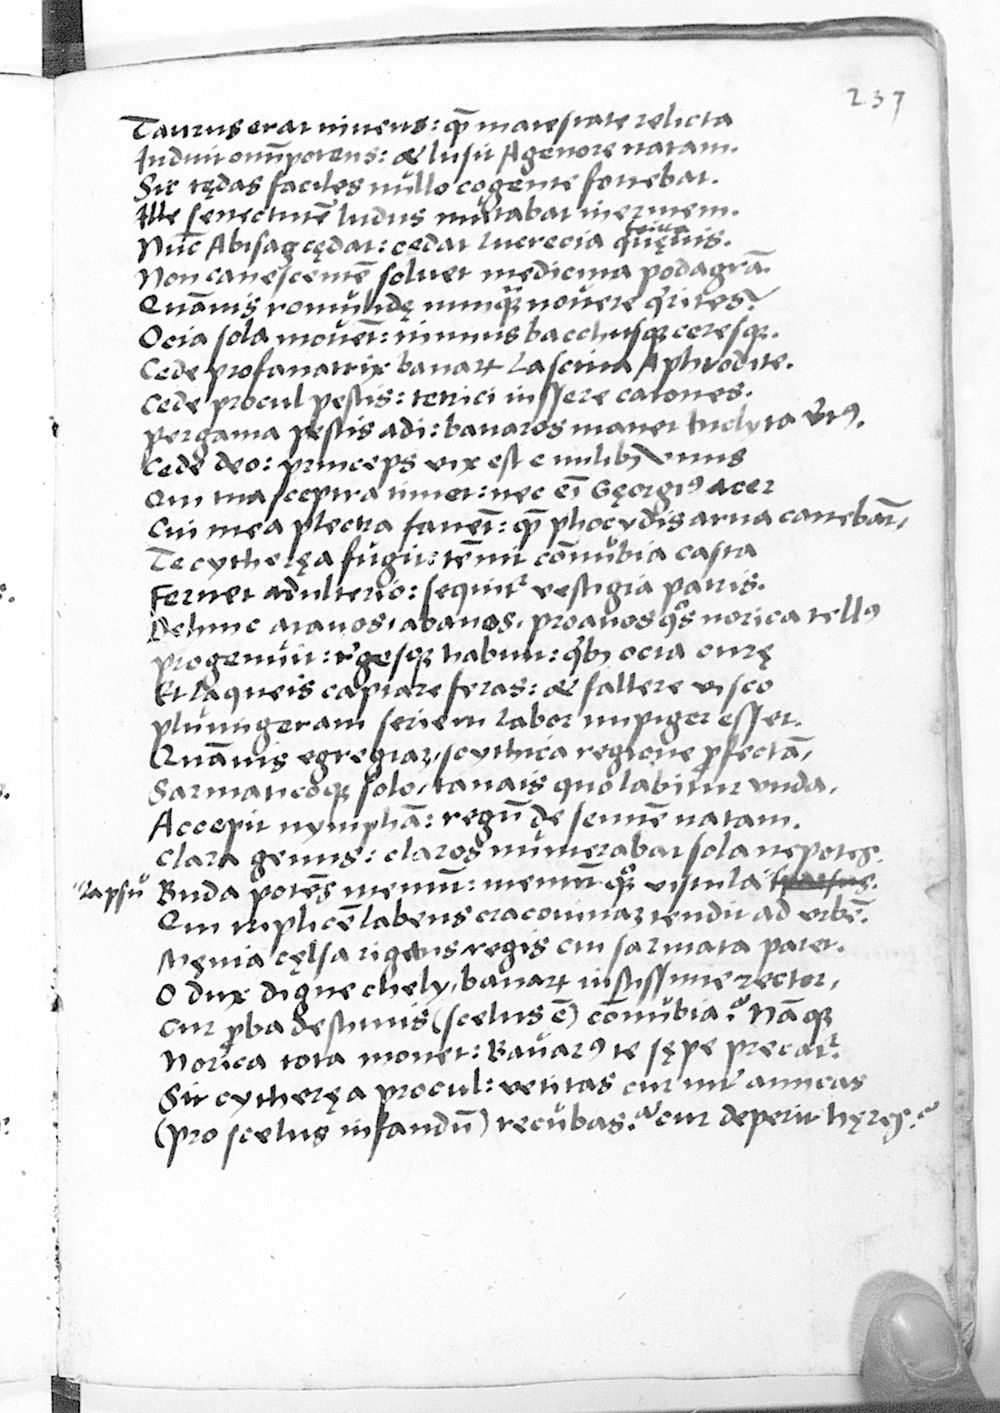 237
Taurus erat niueus: qē maiestate relicta
Induit omīpotens: & lusit Agenore natam.
Sic tędas faciles nullo cogente fouebat.
Ille senectutē ludus multabat inermem.
Nūc Abisag cędat: cędat Lucrecia
Non canescentē soluet medicina podagrā.
Quāuis romulidę nunqͣ nouere qͥrites?
Ocia sola mouēt: nimius bacchusqꝫ ceresqꝫ.
Cede profanatrix bauarꝝ Lasciua Aphrodite.
Cede procul pestis: tetrici inssere catones.
pergama pestis adi: bauaros manet Inclyta vͥtꝰ.
Cede deo: princeps vix est e milibꝫ vnus
Qui tua sceptra timet: nec eī Gęorgiꝰ acer
Cui mea plectra fauēt: qē phocydis arua canebāt,
Te cytheręa fugit: tēnit cōnubia casta
Feruet adulterio: sequitͬ vestigia patris.
Dehinc atauos, abauos, proauos qͦs norica tellꝰ
progenuit: rͤgesqꝫ habuit: qͥbꝫ ocia curę
Et laqueis captare feras: & fallere visco
plumigeram seriem labor impiger esset.
Quāuis egregiaꝫ, scythica regione ꝓfectā,
Sarmaticoqꝫ solo, tanais quo labitur vnda,
Accepit nymphā: regū dę semīe natam.
Clara genus: claros numerabat sola nepotes.
Lapsū Buda potēs meminit: meminit qͦqꝫ vistula
Qui triplicē labens cracouinaꝫ tendit ad vrbē.
Męnia cęlsa rigans regis cui sarmata paret.
O dux digne chely, bauarꝝ iustissime rector,
Cur ꝓba destinis (scelus ē) cōnubia? Nāqꝫ
Norica tota monet: Bauarꝰ te sępe precatͬ.
Sit cytheręa procul: vetitas cur init amicas
(pro scelus infandū) recubas? cur deperit hęres?